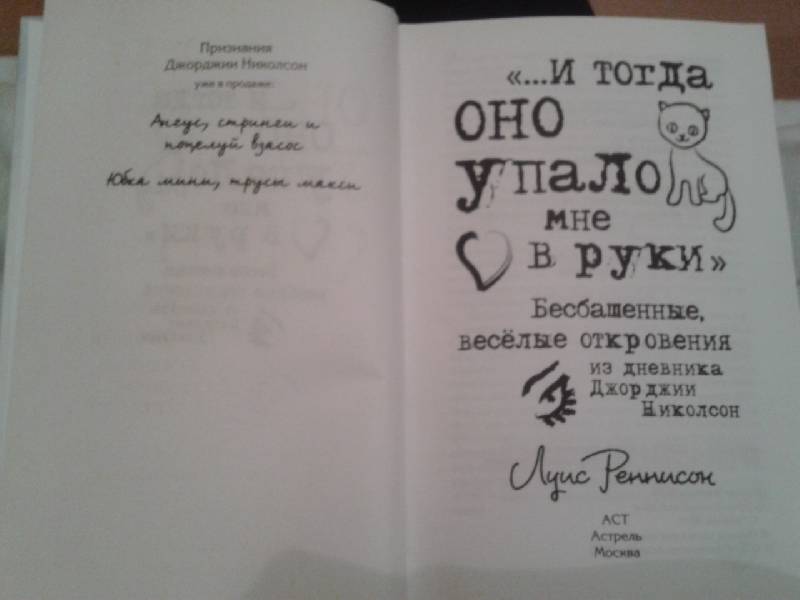 Признания
Джорджии Николсон
уже в продаже:
Ангус, стринги и
поцелуй взасос
Юбка мини, трусы макси
«...И тогда
оно
упало
мне
в руки»
Бесбашенные,
весёлые откровения
из дневника
Джорджии
Николсон
Луис Реннисон
АСТ
Астрель
Москва